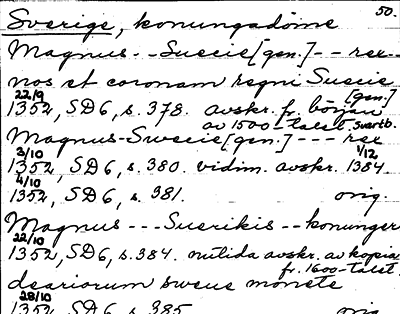 50.
Sverige, konungadöme
Magnus - - Suecie [gen.] - - rex - -
nos et coronam regni Suecie
[gen.]
22/9
1352, SD6, s. 378. avskr. fr. början
av 1500-talet. Svartb.
Magnus - Swecie [gen.] - - - rex
3/10 1/12
1352, SD6, s. 380. vidim. avskr. 1384.
4/10
1352, SD6, s. 381. orig.
Magnus - - - Suerikis - - konunger
22/10
1352, SD6, s. 384. mutila avskr. av kopia
fr. 1600-talet.
deariorum sweus monete
28/10
1352, SD6, s. 385. orig.